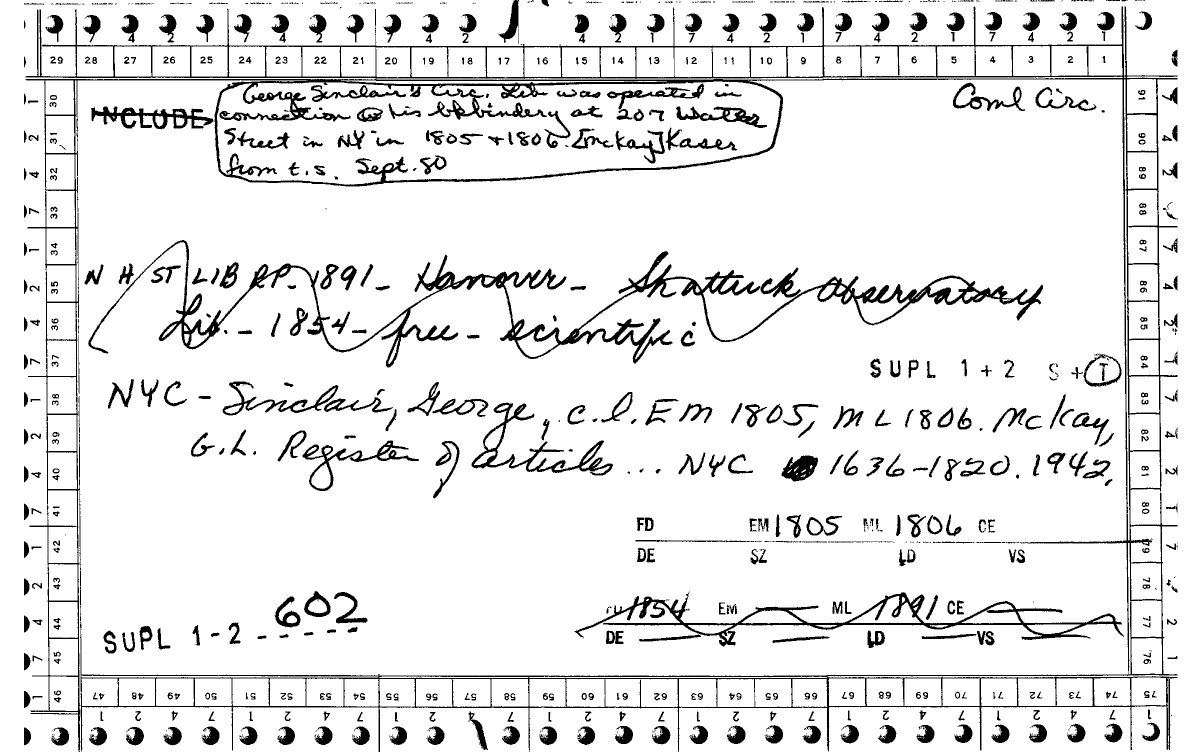 7 4 2 1 7 4 2 1 7 4 2 1 4 2 1 7 4 2 1 7 4 2 1 7 4 2 1
29 28 27 26 25 24 23 22 21 20 19 18 17 16 15 14 13 12 11 10 9 8 7 6 5 4 3 2 1
INCLUDE
George Sinclair's Circ. Lib was operated in
connection @ his bkbindery at 207 Water
Street in NY in 1805 + 1806. [McKay] Kaser
from t.s. Sept. 80
Coml Circ.
N H ST LIB RP - 1891 - Hanover - Shattuck Observatory
Lib. - 1854 - free - scientific
SUPL 1 + 2 S + T
NYC - Sinclair, George, c.l. EM 1805, ML 1806. McKay,
G.L. Register of articles ... NYC 1636-1820. 1942.
FD EM 1805 ML 1806 CE
DE SZ LD VS
1854 EM ML 1891 CE
DE SZ LD VS
SUPL 1-2 602
30 31 32 33 34 35 36 37 38 39 40 41 42 43 44 45 46
91 90 89 88 87 86 85 84 83 82 81 80 79 78 77 76 75
47 48 49 50 51 52 53 54 55 56 57 58 59 60 61 62 63 64 65 66 67 68 69 70 71 72 73 74 75
1 2 4 7 1 2 4 7 1 2 4 7 1 2 4 7 1 2 4 7 1 2 4 7 1 2 4 7 1